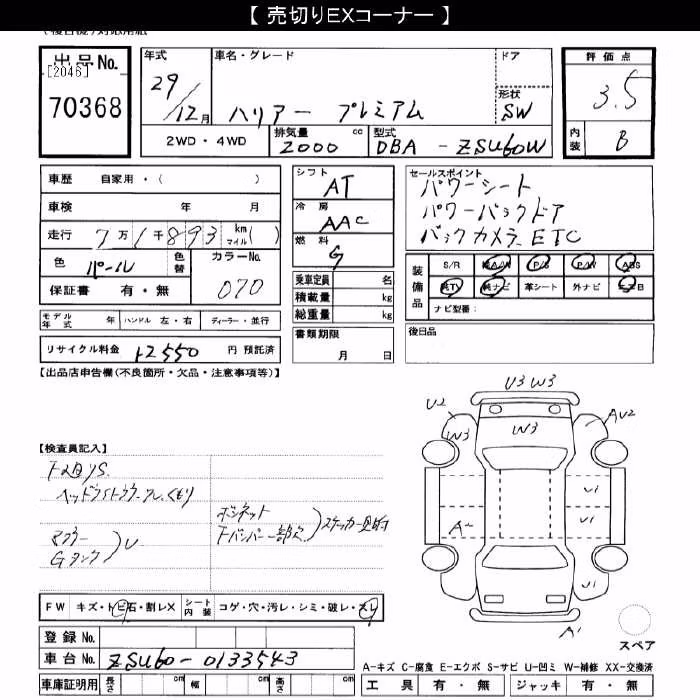 【 売切りEXコーナー 】
出品No.
[2046]
70368
年式
29/12月
車名・グレード
ハリアー プレミアム
ドア
形状
SW
評価点
3.5
内装
B
2WD・4WD
排気量 cc
2000
型式
DBA - ZSU60W
車歴 自家用・( )
車検 年 月
走行 7万1千893 km マイル ( )
色 パール 色替
カラーNo. 070
保証書 有・無
モデル年式 年 ハンドル 左・右 ディーラー・並行
リサイクル料金 12550 円 預託済
シフト
AT
冷房
AAC
燃料
G
乗車定員 名
積載量 kg
総重量 kg
書類期限
月 日
セールスポイント
パワーシート
パワーバックドア
バックカメラ ETC
装備品
S/R 純A/W P/S P/W ABS
純TV 純ナビ 革シート 外ナビ
ナビ型番:
後日品
【出品店申告欄(不良箇所・欠品・注意事項等)】
【検査員記入】
ボンネット
スレ
U3 W3
U2
W3
W3
AU2
U1
U1
A2
U1
A1
FW キズ・トビ石・割レX シート内装 コゲ・穴・汚レ・シミ・破レ・スレ
登録No.
車台No. ZSU60-0133543
車庫証明用 長さ cm 幅 cm 高さ cm
スペア
A-キズ C-腐食 E-エクボ S-サビ U-凹ミ W-補修 XX-交換済
工具 有・無 ジャッキ 有・無